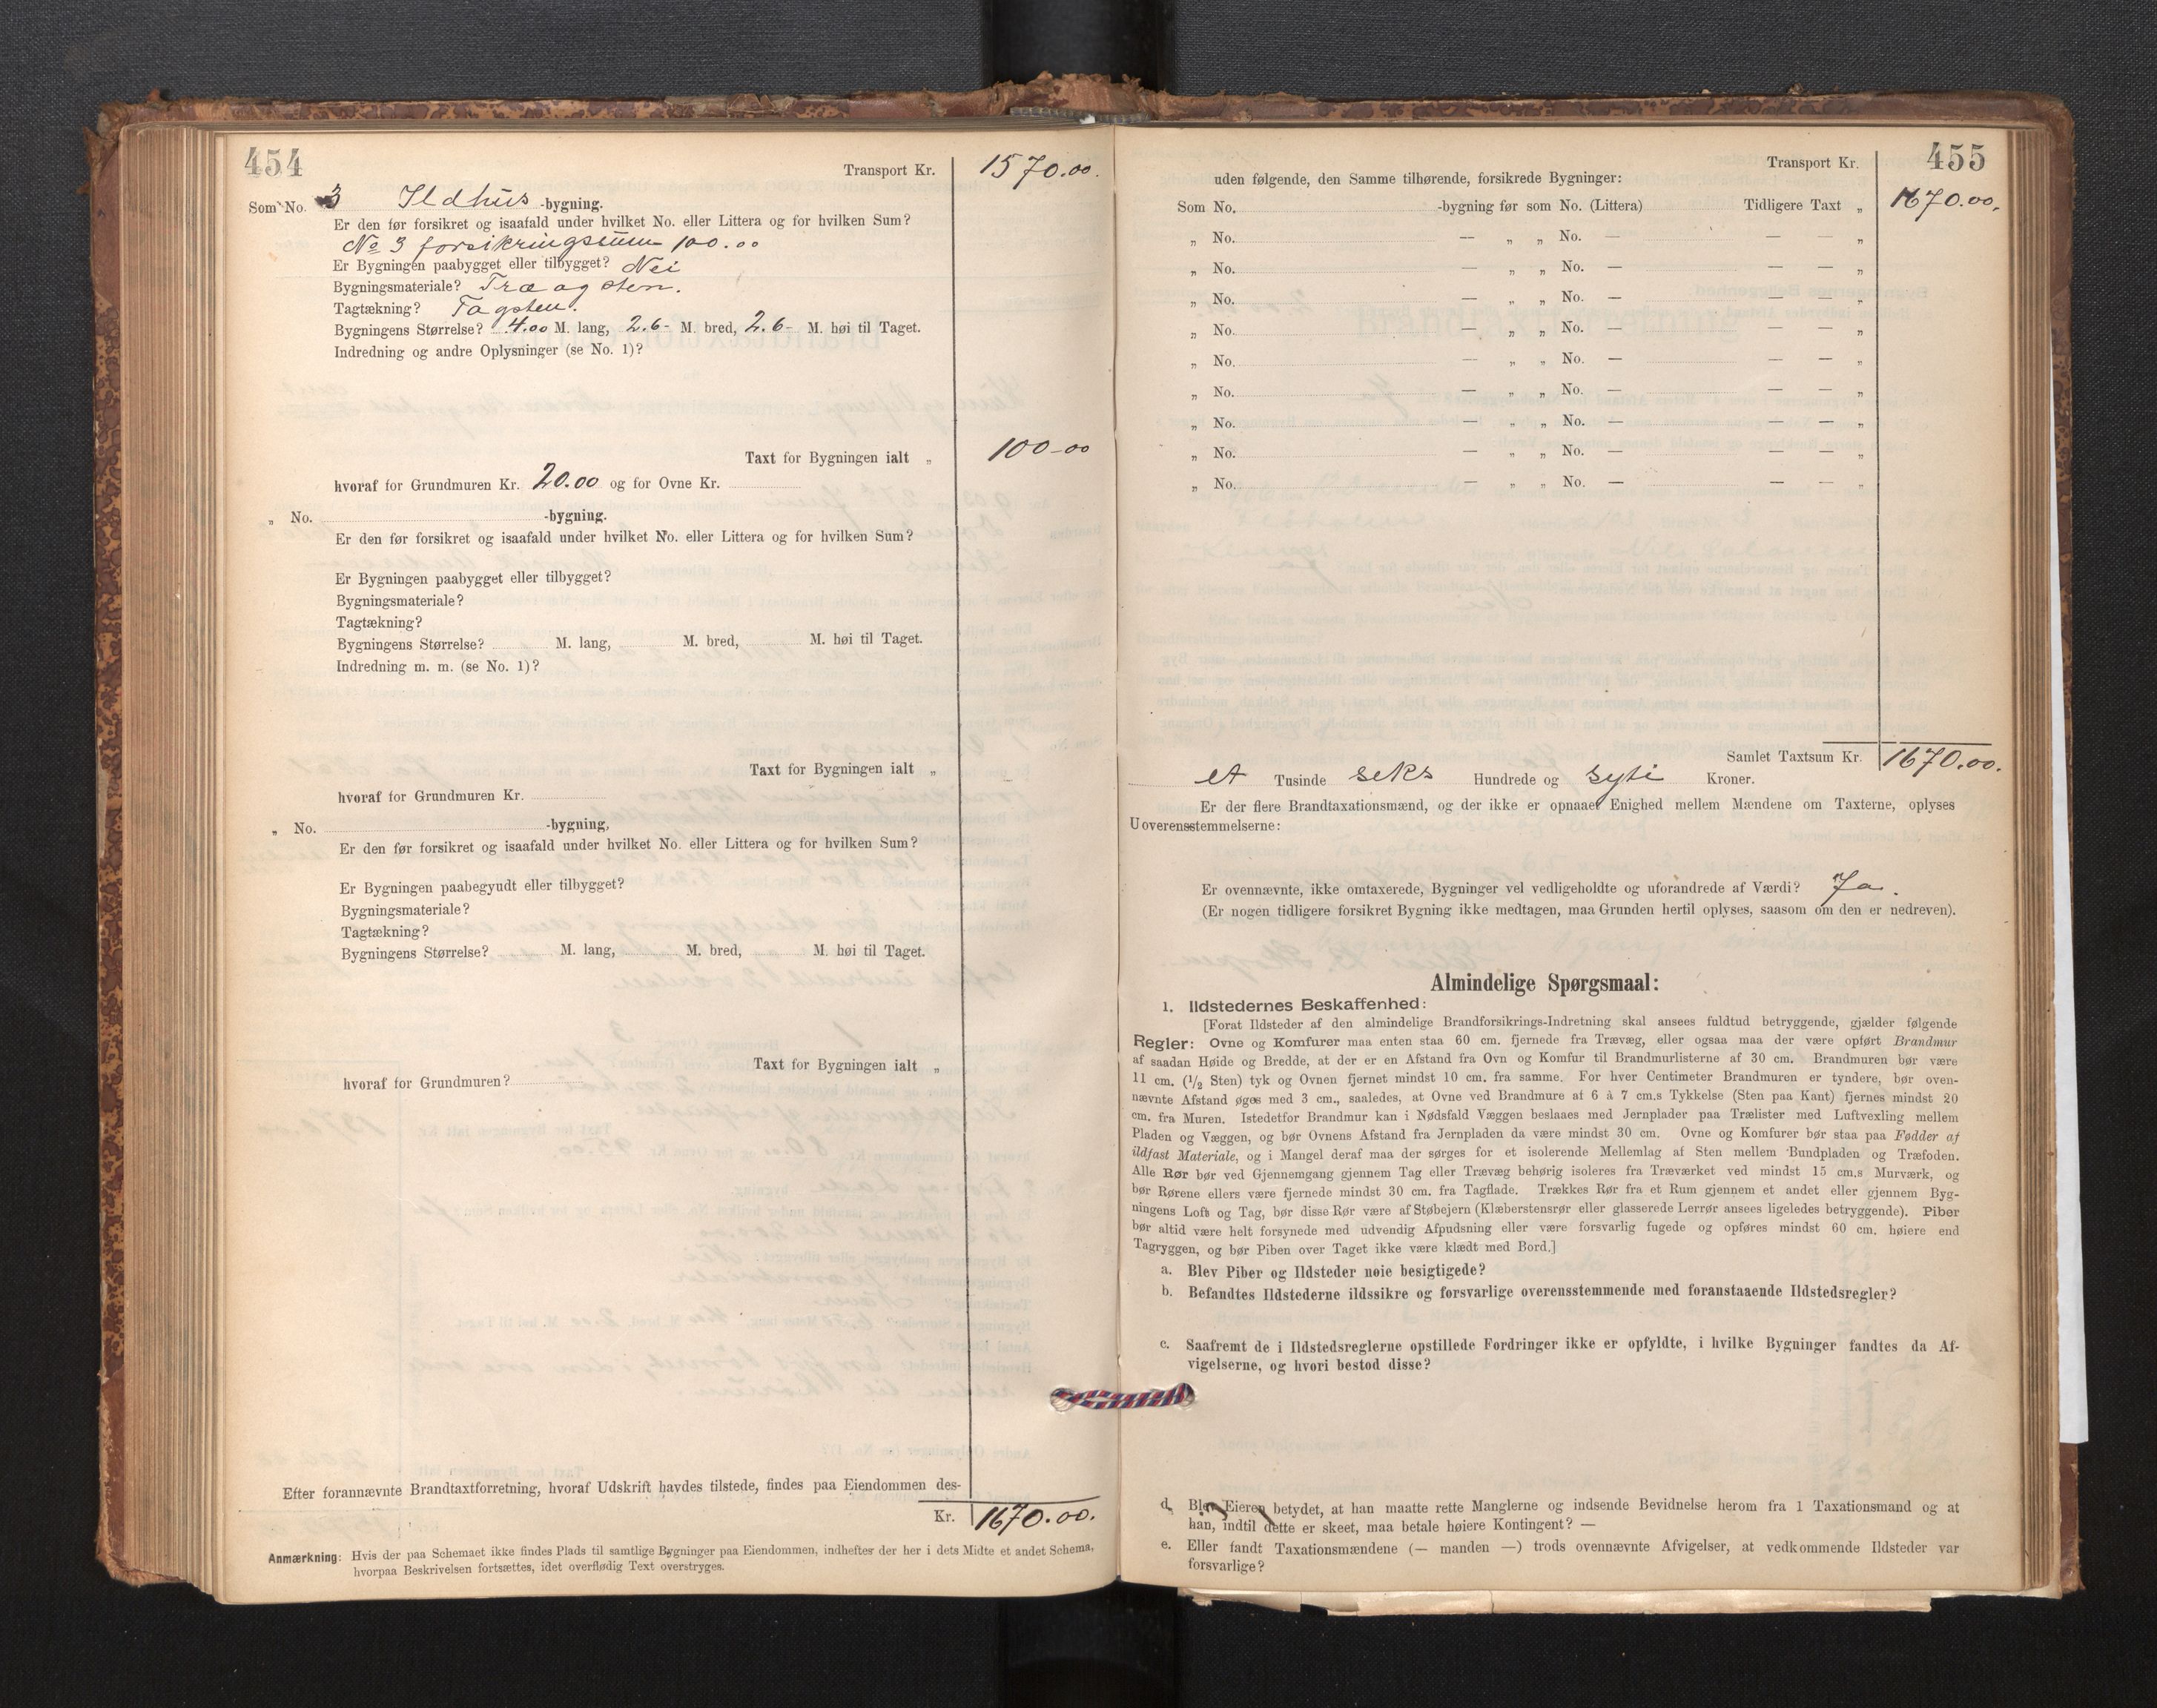 454
Transport Kr. 1570.00.
Som No. 3 Ildhus -bygning.
Er den før forsikret og isaafald under hvilket No. eller Littera og for hvilken Sum?
No 3 forsikringssum 100.00
Er Bygningen paabygget eller tilbygget? Nei
Bygningsmateriale? Træ og sten.
Tagtækning? Tagsten.
Bygningens Størrelse? 4.00 M. lang, 2.6- M. bred, 2.6- M. høi til Taget.
Indredning og andre Oplysninger (se No. 1)?
Taxt for Bygningen ialt „ 100-00
hvoraf for Grundmuren Kr. 20.00 og for Ovne Kr.
„ No. -bygning.
Er den før forsikret og isaafald under hvilket No. eller Littera og for hvilken Sum?
Er Bygningen paabygget eller tilbygget?
Bygningsmateriale?
Tagtækning?
Bygningens Størrelse? M. lang, M. bred, M. høi til Taget.
Indredning m. m. (se No. 1)?
Taxt for Bygningen ialt „
hvoraf for Grundmuren Kr.
„ No. -bygning,
Er den før forsikret og isaafald under hvilket No. eller Littera og for hvilken Sum?
Er Bygningen paabegyudt eller tilbygget?
Bygningsmateriale?
Tagtækning?
Bygningens Størrelse? M. lang, M. bred, M. høi til Taget.
Taxt for Bygningen ialt „
hvoraf for Grundmuren?
Efter forannævnte Brandtaxtforretning, hvoraf Udskrift havdes tilstede, findes paa Eiendommen des-
Kr. 1670.00.
Anmærkning: Hvis der paa Schemaet ikke findes Plads til samtlige Bygninger paa Eiendommen, indheftes der her i dets Midte et andet Schema,
hvorpaa Beskrivelsen fortsættes, idet overflødig Text overstryges.
455
Transport Kr.
uden følgende, den Samme tilhørende, forsikrede Bygninger:
Som No. -bygning før som No. (Littera) Tidligere Taxt „ 1670.00.
„ No. — „ „ No. — — — „
„ No. — „ „ No. — — — „
„ No. — „ „ No. — — — „
„ No. — „ „ No. — — — „
„ No. — „ „ No. — — — „
„ No. — „ „ No. — — — „
„ No. — „ „ No. — — — „
„ No. — „ „ No. — — — „
„ No. — „ „ No. — — — „
Samlet Taxtsum Kr. 1670.00.
et Tusinde seks Hundrede og syti Kroner.
Er der flere Brandtaxationsmænd, og der ikke er opnaaet Enighed mellem Mændene om Taxterne, oplyses
Uoverensstemmelserne:
Er ovennævnte, ikke omtaxerede, Bygninger vel vedligeholdte og uforandrede af Værdi? Ja.
(Er nogen tidligere forsikret Bygning ikke medtagen, maa Grunden hertil oplyses, saasom om den er nedreven).
Almindelige Spørgsmaal:
1. Ildstedernes Beskaffenhed:
[Forat Ildsteder af den almindelige Brandforsikrings-Indretning skal ansees fuldtud betryggende, gjælder følgende
Regler: Ovne og Komfurer maa enten staa 60 cm. fjernede fra Trævæg, eller ogsaa maa der være opført Brandmur
af saadan Høide og Bredde, at der er en Afstand fra Ovn og Komfur til Brandmurlisterne af 30 cm. Brandmuren bør være
11 cm. (1/2 Sten) tyk og Ovnen fjernet mindst 10 cm. fra samme. For hver Centimeter Brandmuren er tyndere, bør oven-
nævnte Afstand øges med 3 cm., saaledes, at Ovne ved Brandmure af 6 à 7 cm.s Tykkelse (Sten paa Kant) fjernes mindst 20
cm. fra Muren. Istedetfor Brandmur kan i Nødsfald Væggen beslaaes med Jernplader paa Trælister med Luftvexling mellem
Pladen og Væggen, og bør Ovnens Afstand fra Jernpladen da være mindst 30 cm. Ovne og Komfurer bør staa paa Fødder af
ildfast Materiale, og i Mangel deraf maa der sørges for et isolerende Mellemlag af Sten mellem Bundpladen og Træfoden.
Alle Rør bør ved Gjennemgang gjennem Tag eller Trævæg behørig isoleres fra Træværket ved mindst 15 cm.s Murværk, og
bør Rørene ellers være fjernede mindst 30 cm. fra Tagflade. Trækkes Rør fra et Rum gjennem et andet eller gjennem Byg-
ningens Loft og Tag, bør disse Rør være af Støbejern (Klæberstensrør eller glasserede Lerrør ansees ligeledes betryggende). Piber
bør altid være helt forsynede med udvendig Afpudsning eller være forsvarlig fugede og opføres mindst 60 cm. høiere end
Tagryggen, og bør Piben over Taget ikke være klædt med Bord.]
a. Blev Piber og Ildsteder nøie besigtigede?
b. Befandtes Ildstederne ildssikre og forsvarlige overensstemmende med foranstaaende Ildstedsregler?
c. Saafremt de i Ildstedsreglerne opstillede Fordringer ikke er opfyldte, i hvilke Bygninger fandtes da Af-
vigelserne, og hvori bestod disse?
d. Blev Eieren betydet, at han maatte rette Manglerne og indsende Bevidnelse herom fra 1 Taxationsmand og at
han, indtil dette er skeet, maa betale høiere Kontingent? —
e. Eller fandt Taxationsmændene (— manden —) trods ovennævnte Afvigelser, at vedkommende Ildsteder var
forsvarlige?